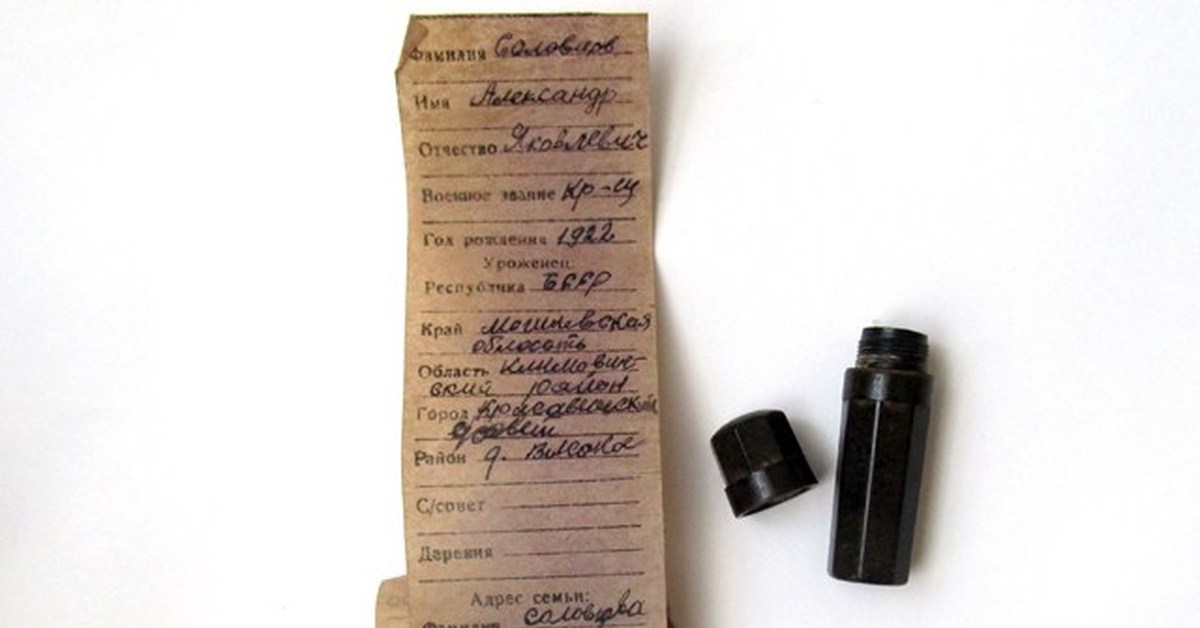 Фамилия Соловьев
Имя Александр
Отчество Яковлевич
Военное звание кр-ец
Год рождения 1922
Уроженец:
Республика БССР
Край могилевская
область
Область Климович-
ский район
Город
Район д.
С/совет
Деревня
Адрес семьи:
Фамилия